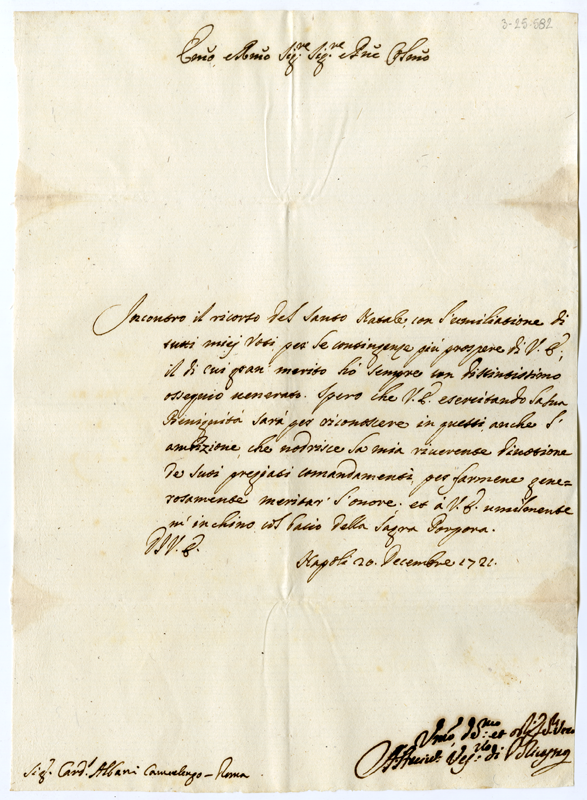 3-25-582
Em͂o, e Rm͂o Sig.re Sig.re e Pne͂ Col͂mo
Incontro il ricorso del Santo Natale, con l'umiliatione di
tutti miej Voti per le contingenze più prospere di V. E.,
il di cui gran merito hò sempre con distintissimo
osseguio venerato. Spero che V. E. esercitando la sua
Benignità sarà per riconoscere in questi anche l'
ambizione che nodrisce la mia riverente divotione
de suoi pregiati comandamenti, per farmene gene-
rosamente meritar l'onore. et à V. E. umilmente
m'inchino col bacio della Sagra Porpora.
Di V. E.
Napoli 20. Decembre 1721.
Sig.r Card.l Albani Camerlengo - Roma
Um͂o, de.mo et
di